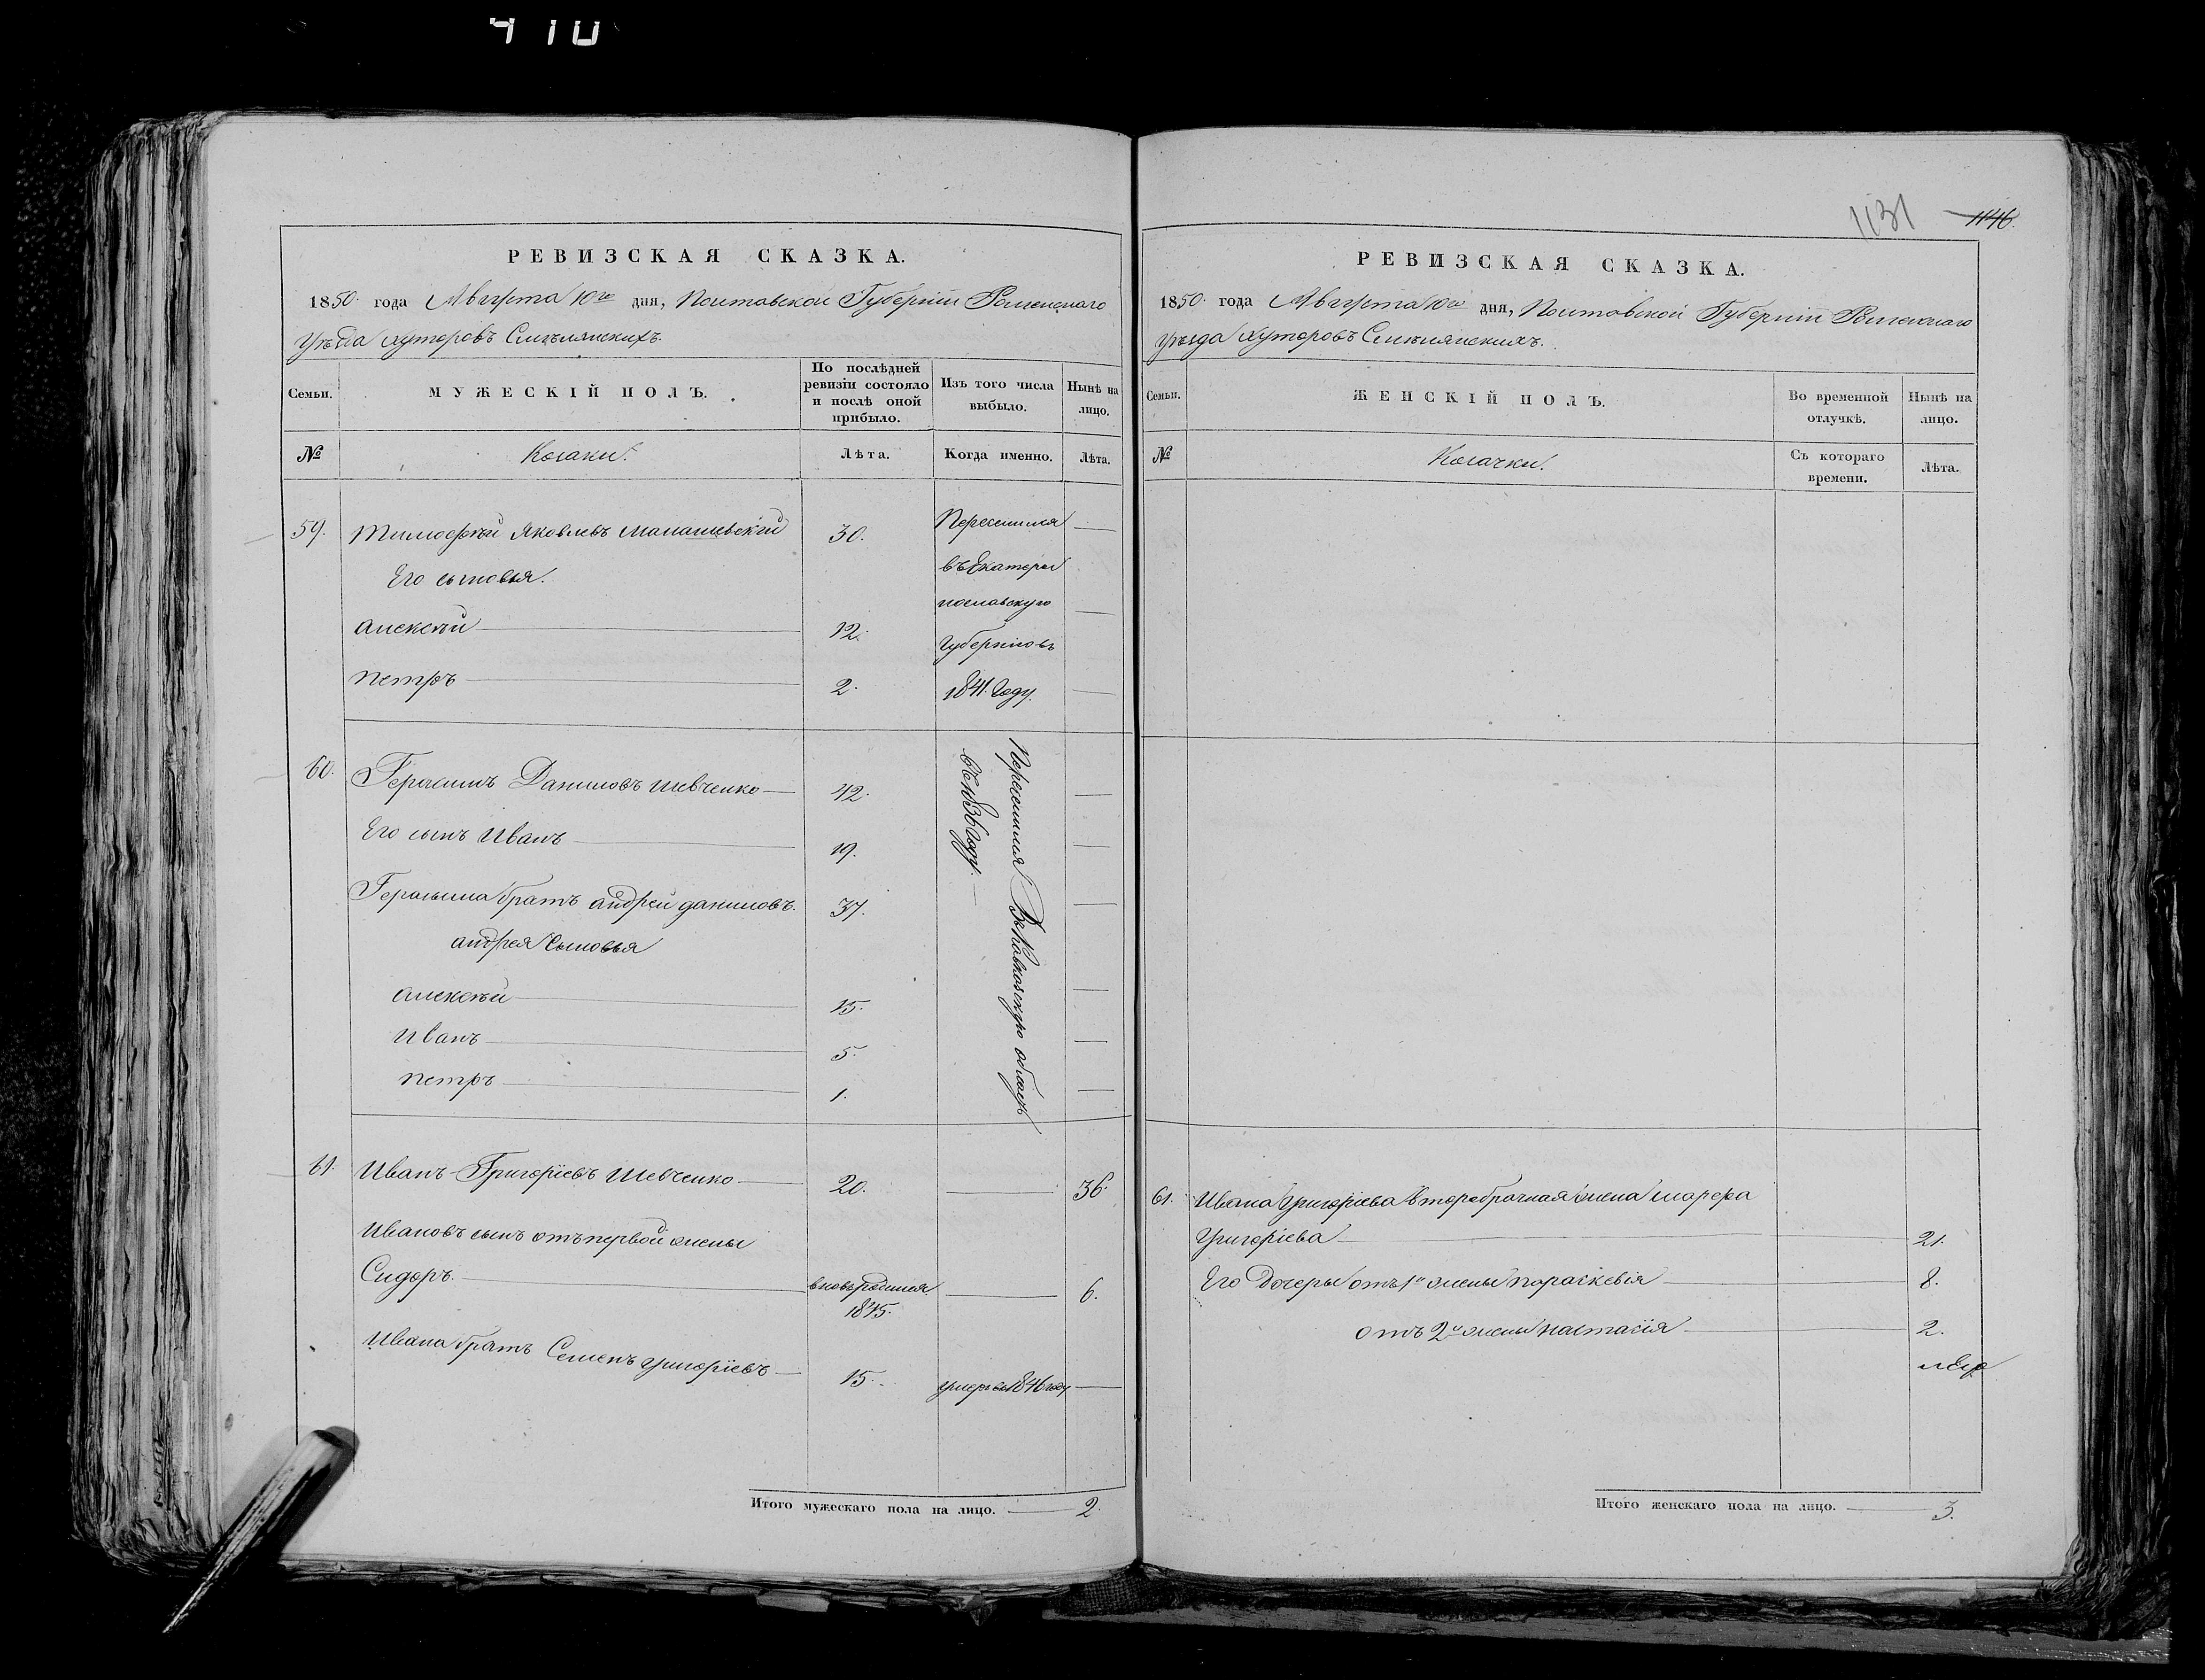 410
РЕВИЗСКАЯ СКАЗКА.
1850 года Августа 10го дня, Полтавской Губерніи Роменскаго
Уѣзда хуторовъ Смѣлянскихъ.
Семьи.
МУЖЕСКІЙ ПОЛЪ.
По послѣдней ревизіи состояло и послѣ оной прибыло.
Изъ того числа выбыло.
Нынѣ на лицо.
№
Козаки.
Лѣта.
Когда именно.
Лѣта.
59. Тимофѣй Яковлевъ 30. Переселился —
Его сыновья. въ Екатери
Алексѣй 12. нославскую —
Губернію въ
Петръ 2. 1841 Году. —
60. Герасимъ Даниловъ Шевченко 42. —
Переселился Въ Кавказскую область
Году. —
Его сынъ Иванъ 19. —
Герасима братъ андрей даниловъ. 37. —
андрея Сыновья
Алексѣй 15. —
Иванъ 5. —
Петръ 1. —
61. Иванъ Григоріевъ Шевченко 20. — 36.
Ивановъ сынъ отъ первой жены
Сидоръ. вновьродился 1845. — 6.
Ивана братъ Семенъ григоріевъ 15. умеръ въ 1846 году —
Итого мужескаго пола на лицо. — 2.
1131 1146.
РЕВИЗСКАЯ СКАЗКА.
1850 года Августа 10го дня, Полтавской Губерніи Роменскаго
уѣзда хуторовъ Смѣлянскихъ.
Семьи.
ЖЕНСКІЙ ПОЛЪ.
Во временной отлучкѣ.
Нынѣ на лицо.
№
Козачки.
Съ котораго времени.
Лѣта.
61. Ивана Григоріева второбрачная жена марфа
Григоріева 21.
Его Дочеры отъ 1й жены параскевія 8.
отъ 2й жены настасія 2.
Итого женскаго пола на лицо. — 3.